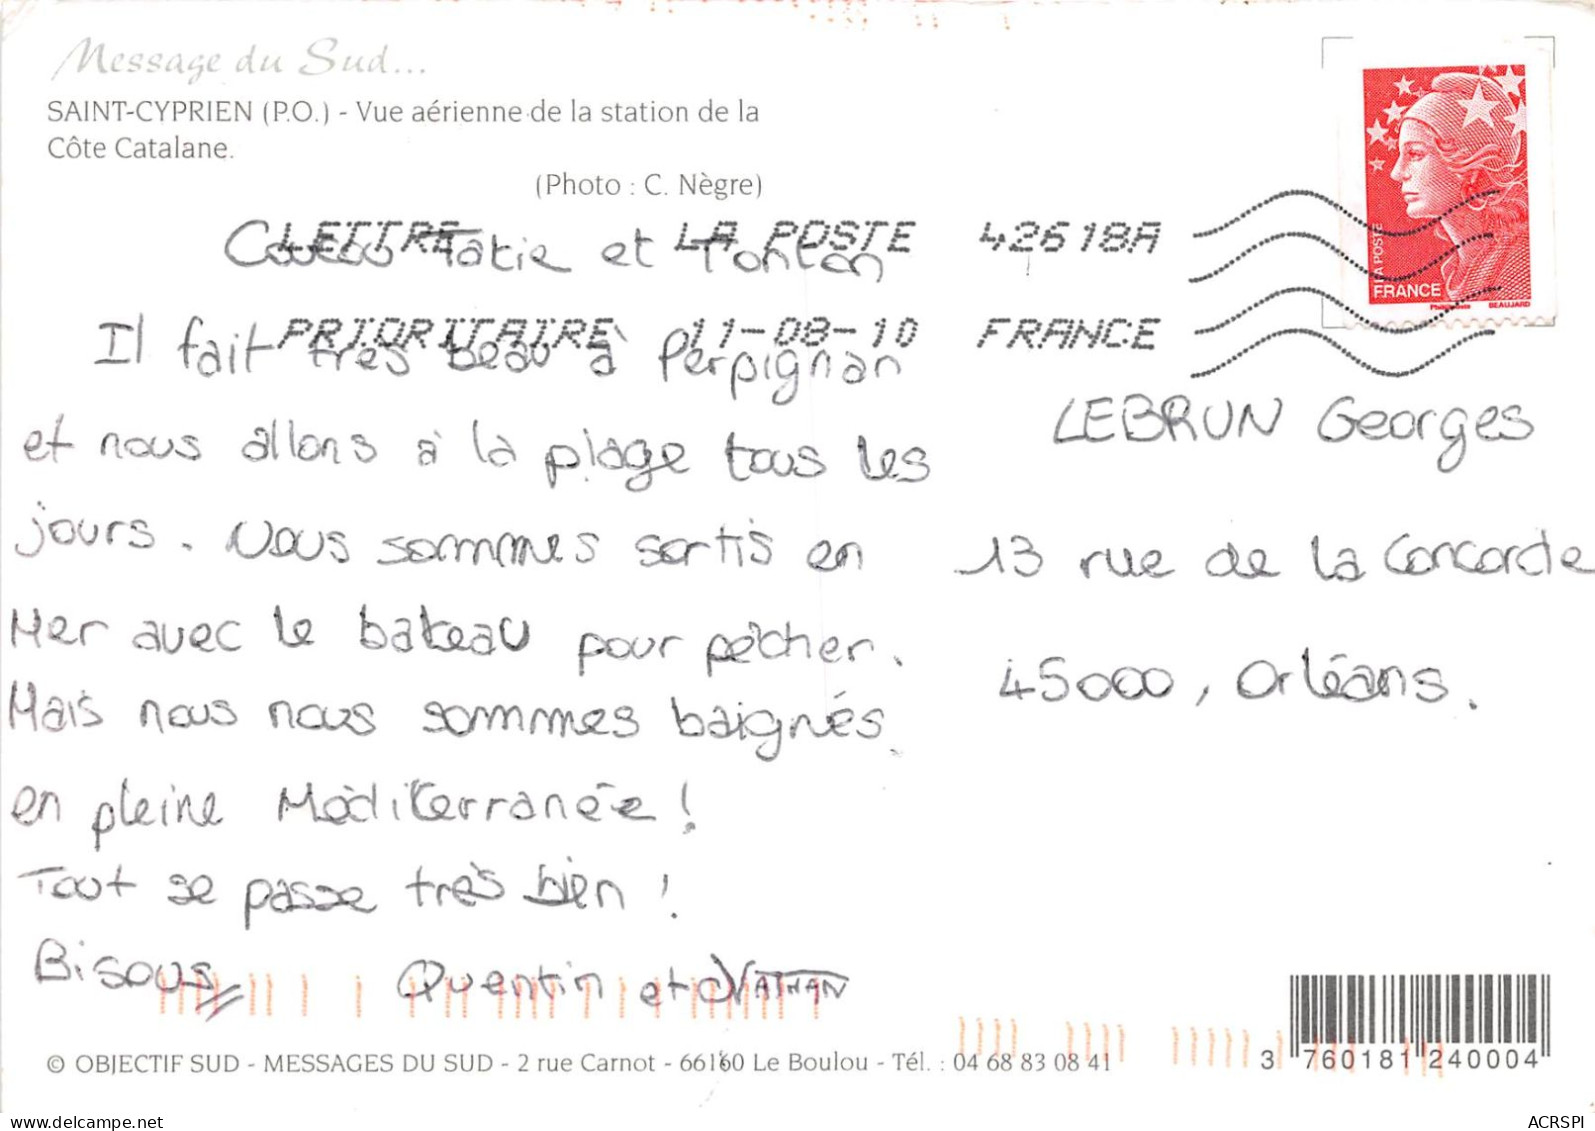 Message du Sud...
SAINT-CYPRIEN (P.O.) - Vue aérienne de la station de la
Côte Catalane.
(Photo : C. Nègre)
LA POSTE
FRANCE
BEAUJARD
LETTRE LA POSTE 42618A
PRIORITAIRE 11-08-10 FRANCE
Coucou Tatie et Tonton
Il fait très beau à Perpignan
et nous allons à la plage tous les
jours. Nous sommes sortis en
Mer avec le bateau pour pêcher.
Mais nous nous sommes baignés
en pleine Méditerranée !
Tout se passe très bien !
Bisous Quentin et NATHAN
LEBRUN Georges
13 rue de la Concorde
45000, Orléans.
© OBJECTIF SUD - MESSAGES DU SUD - 2 rue Carnot - 66160 Le Boulou - Tél. : 04 68 83 08 41
3 760181 240004
ACRSPI